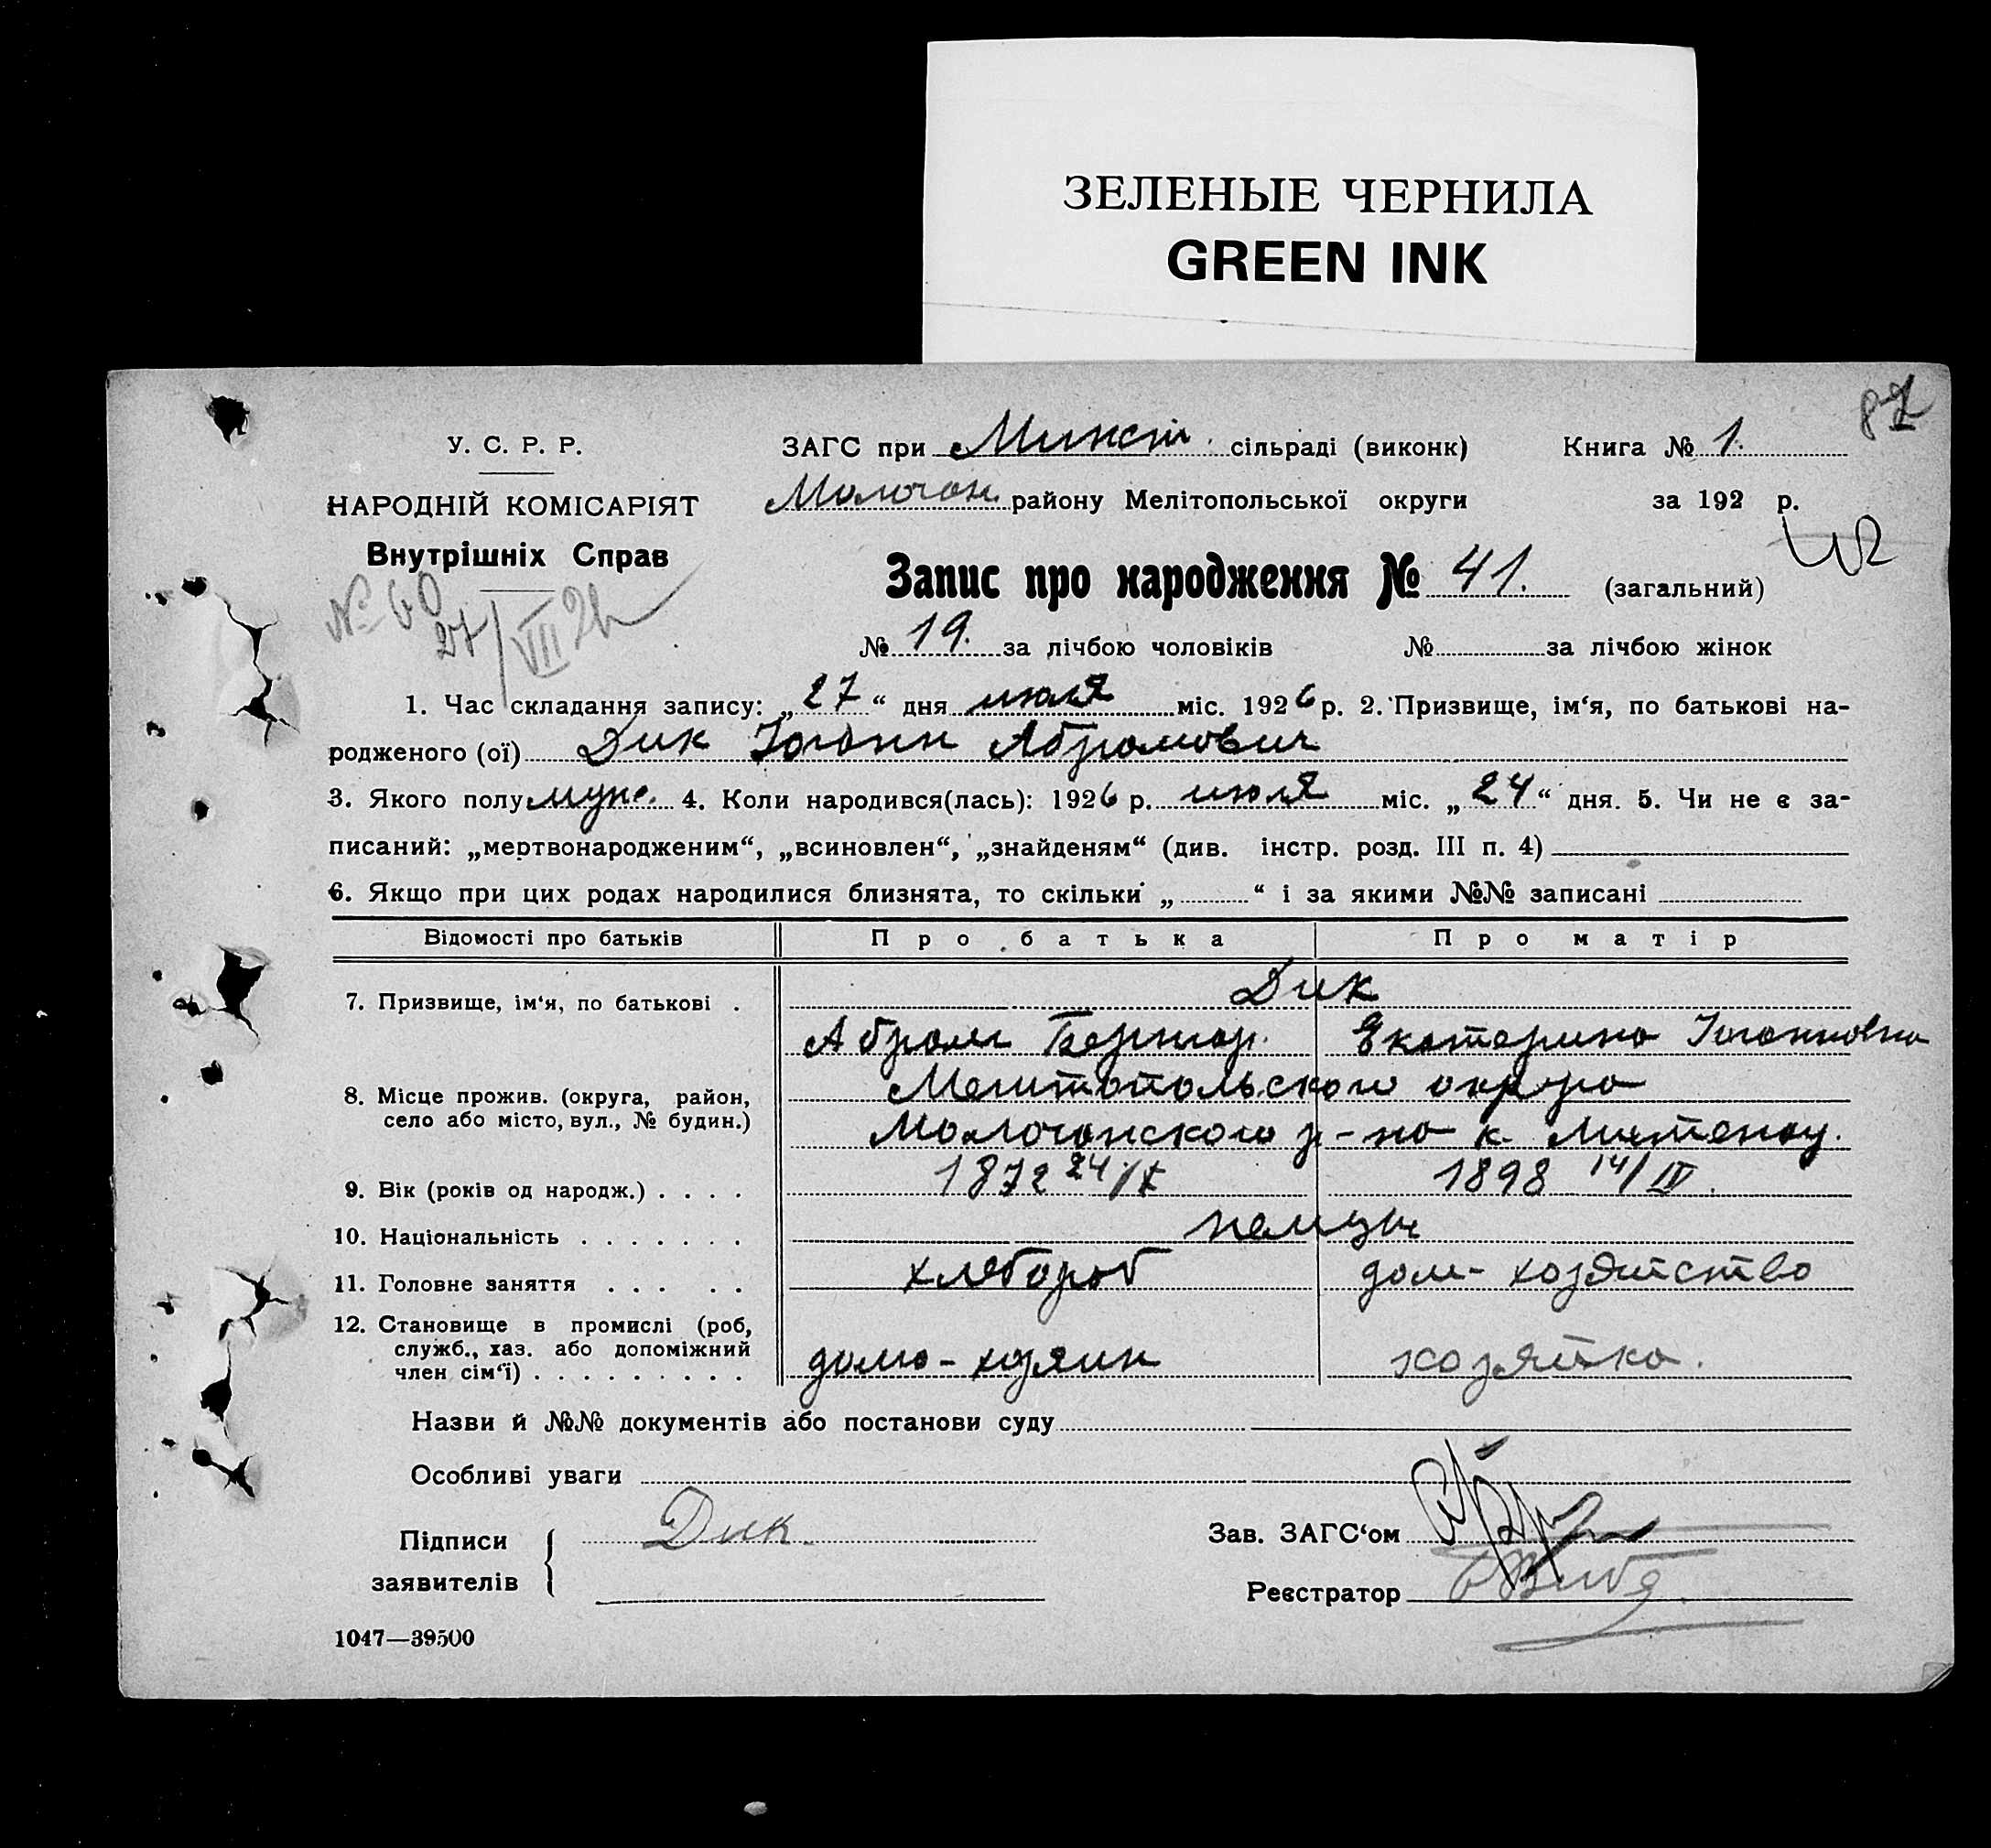 ЗЕЛЕНЫЕ ЧЕРНИЛА
GREEN INK
87
У. С. Р. Р.
НАРОДНІЙ КОМІСАРІЯТ
Внутрішніх Справ
№ 60 27/VII 26
ЗАГС при сільраді (виконк) Книга № 1.
Молочан. району Мелітопольської округи за 192 р.
42
Запис про народження № 41. (загальний)
№ 19. за лічбою чоловіків № за лічбою жінок
1. Час складання запису: „ 27 “ дня июля міс. 1926 р. 2. Призвище, ім‘я, по батькові на-
родженого (ої) Дик Іоганн Абрамович
3. Якого полу муж. 4. Коли народився(лась): 1926 р. июля міс. „ 24 “ дня. 5. Чи не є за-
писаний: „мертвонародженим“, „всиновлен“, „знайденям“ (див. інстр. розд. III п. 4)
6. Якщо при цих родах народилися близнята, то скільки „ “ і за якими №№ записані
Відомості про батьків Про батька Про матір
7. Призвище, ім‘я, по батькові . Дик
Абрам Бернгар. Екатерина Іоганновна
8. Місце прожив. (округа, район, село або місто, вул., № будин.) Мелитопольского округа
Молочанского р-на к. Лихтенау.
9. Вік (років од народж.) . . . . 1872 24/X 1898 14/IV.
10. Національність . . . . . . . немцы
11. Головне заняття . . . . . хлебороб дом-хозяйство
12. Становище в промислі (роб,
служб., хаз. або допоміжний
член сім‘ї) . . . . . . . . . домо-хозяин хозяйка.
Назви й №№ документів або постанови суду
Особливі уваги
Підписи заявителів Дик
Зав. ЗАГС‘ом
Реєстратор
1047—39500